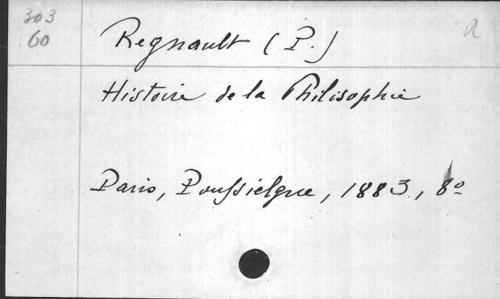 303
60
Regnault (P.)
a
Histoire de la Philisophie
Paris, Poussielgue, 1883, 8º